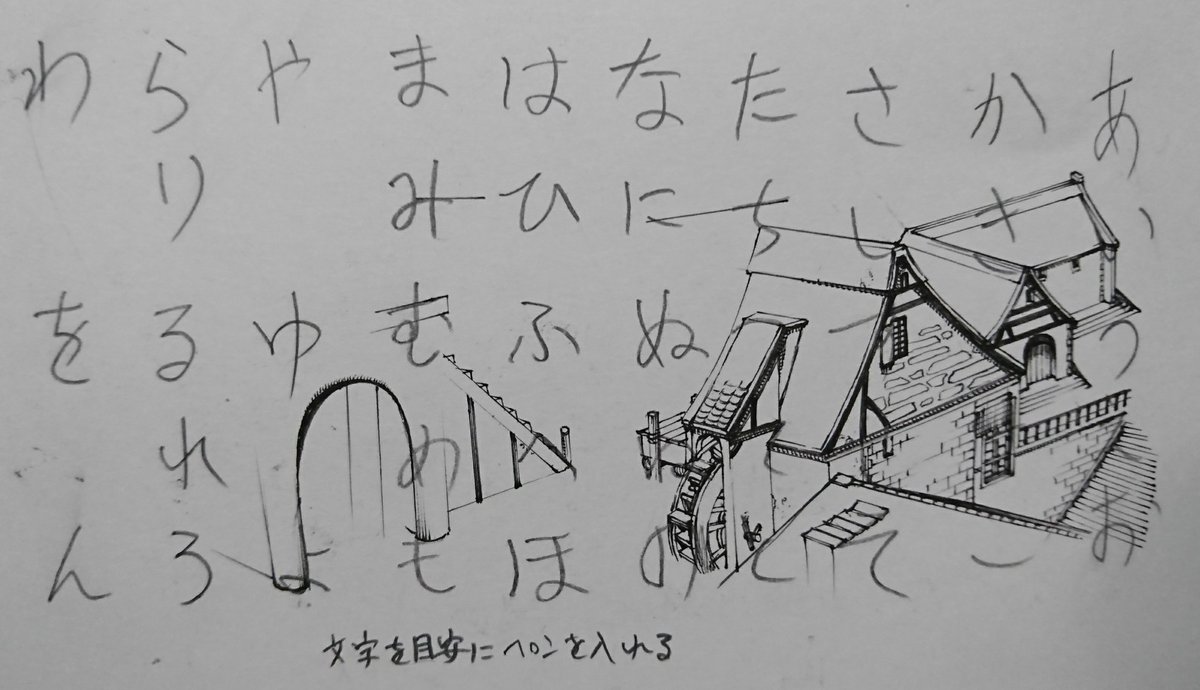 あいうお
かきこ
さしすそ
たちてと
なにぬねの
はひふへほ
まみむめも
やゆよ
らりるれろ
わをん
文字を目安にペンを入れる